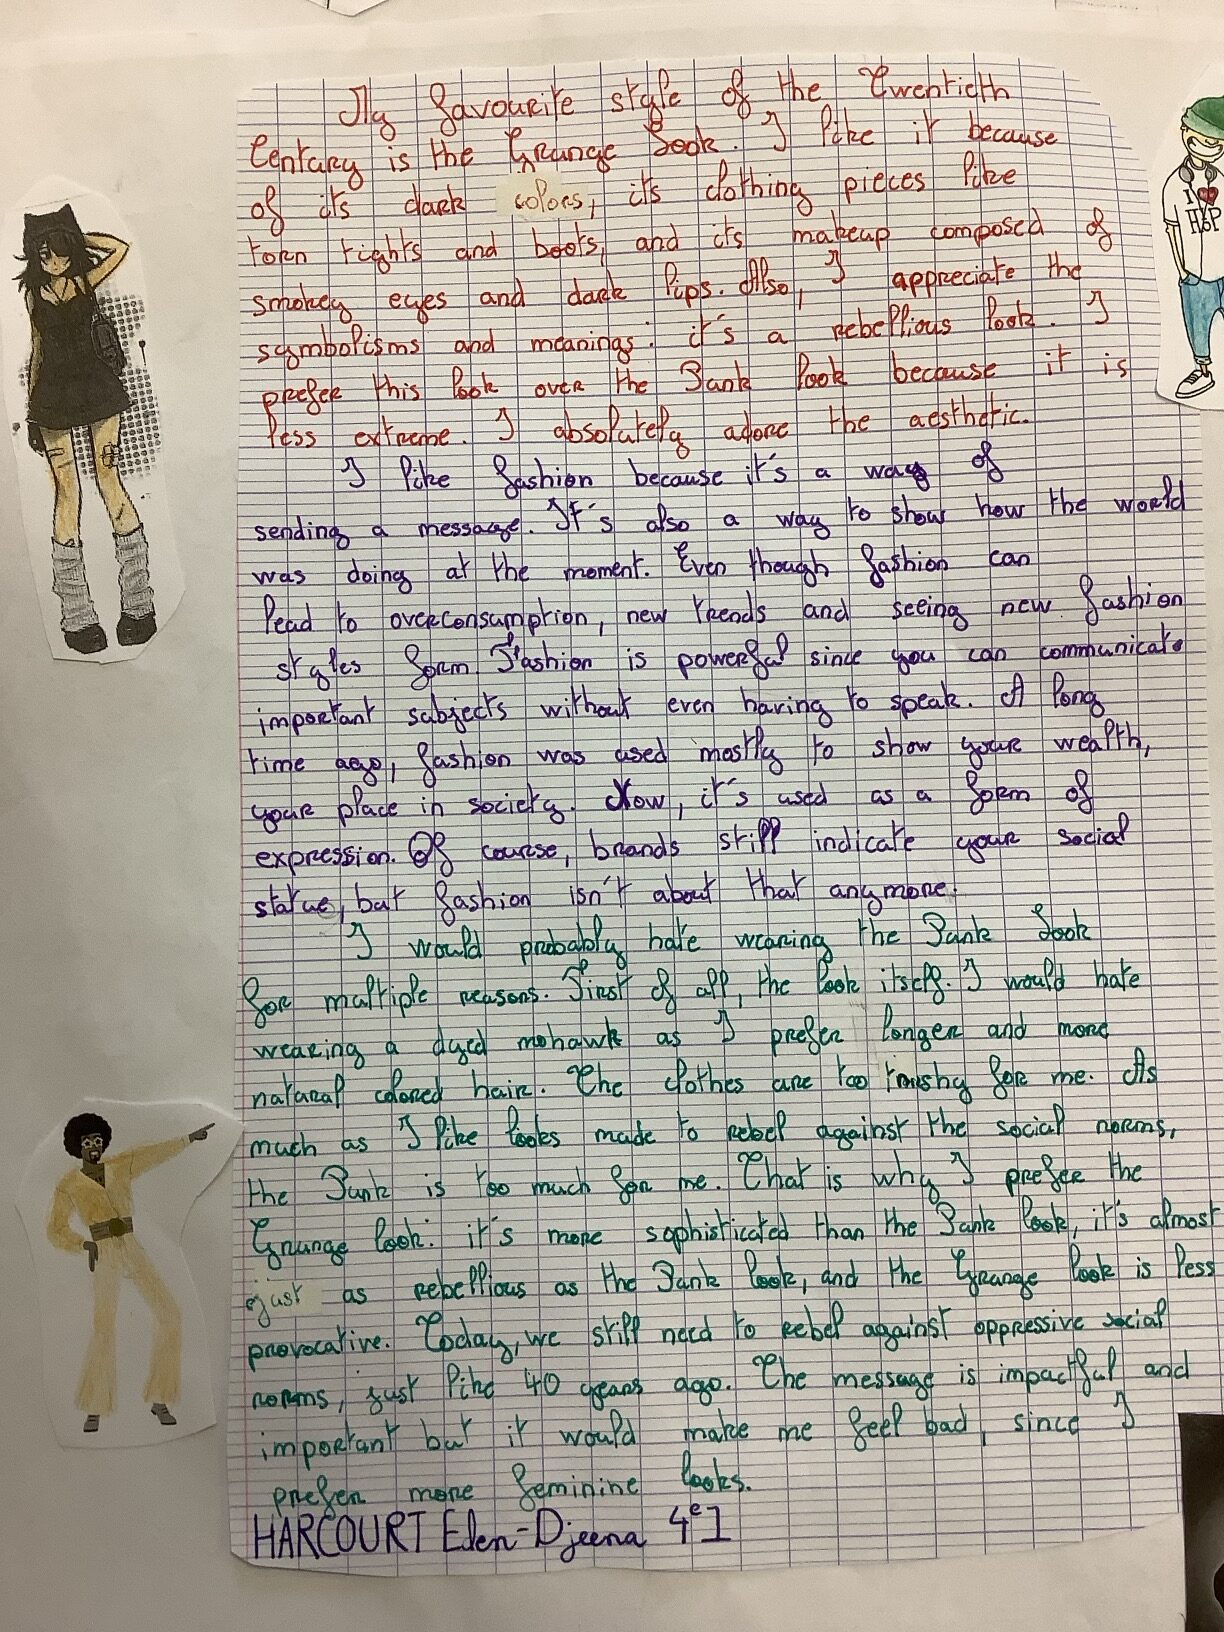 My favourite style of the Twentieth
Century is the Grunge Look. I like it because
of its dark colors, its clothing pieces like
torn tights and boots, and its makeup composed of
smokey eyes and dark lips. Also, I appreciate the
symbolisms and meanings: it's a rebellious look. I
prefer this look over the Punk look because it is
less extreme. I absolutely adore the aesthetic.
I like fashion because it's a way of
sending a message. It's also a way to show how the world
was doing at the moment. Even though fashion can
lead to overconsumption, new trends and seeing new fashion
styles form Fashion is powerful since you can communicate
important subjects without even having to speak. A long
time ago, fashion was used mostly to show your wealth,
your place in society. Now, it's used as a form of
expression. Of course, brands still indicate your social
statue, but fashion isn't about that anymore.
I would probably hate wearing the Punk Look
for multiple reasons. First of all, the look itself. I would hate
wearing a dyed mohawk as I prefer longer and more
natural colored hair. The clothes are too for me. As
much as I like looks made to rebel against the social norms,
the Punk is too much for me. That is why I prefer the
Grunge look: it's more sophisticated than the Punk look, it's almost
just as rebellious as the Punk look, and the Grunge look is less
provocative. Today, we still need to rebel against oppressive social
norms, just like 40 years ago. The message is impactful and
important but it would make me feel bad, since I
prefer more feminine looks.
HARCOURT Elen-Djeena 4e1
I